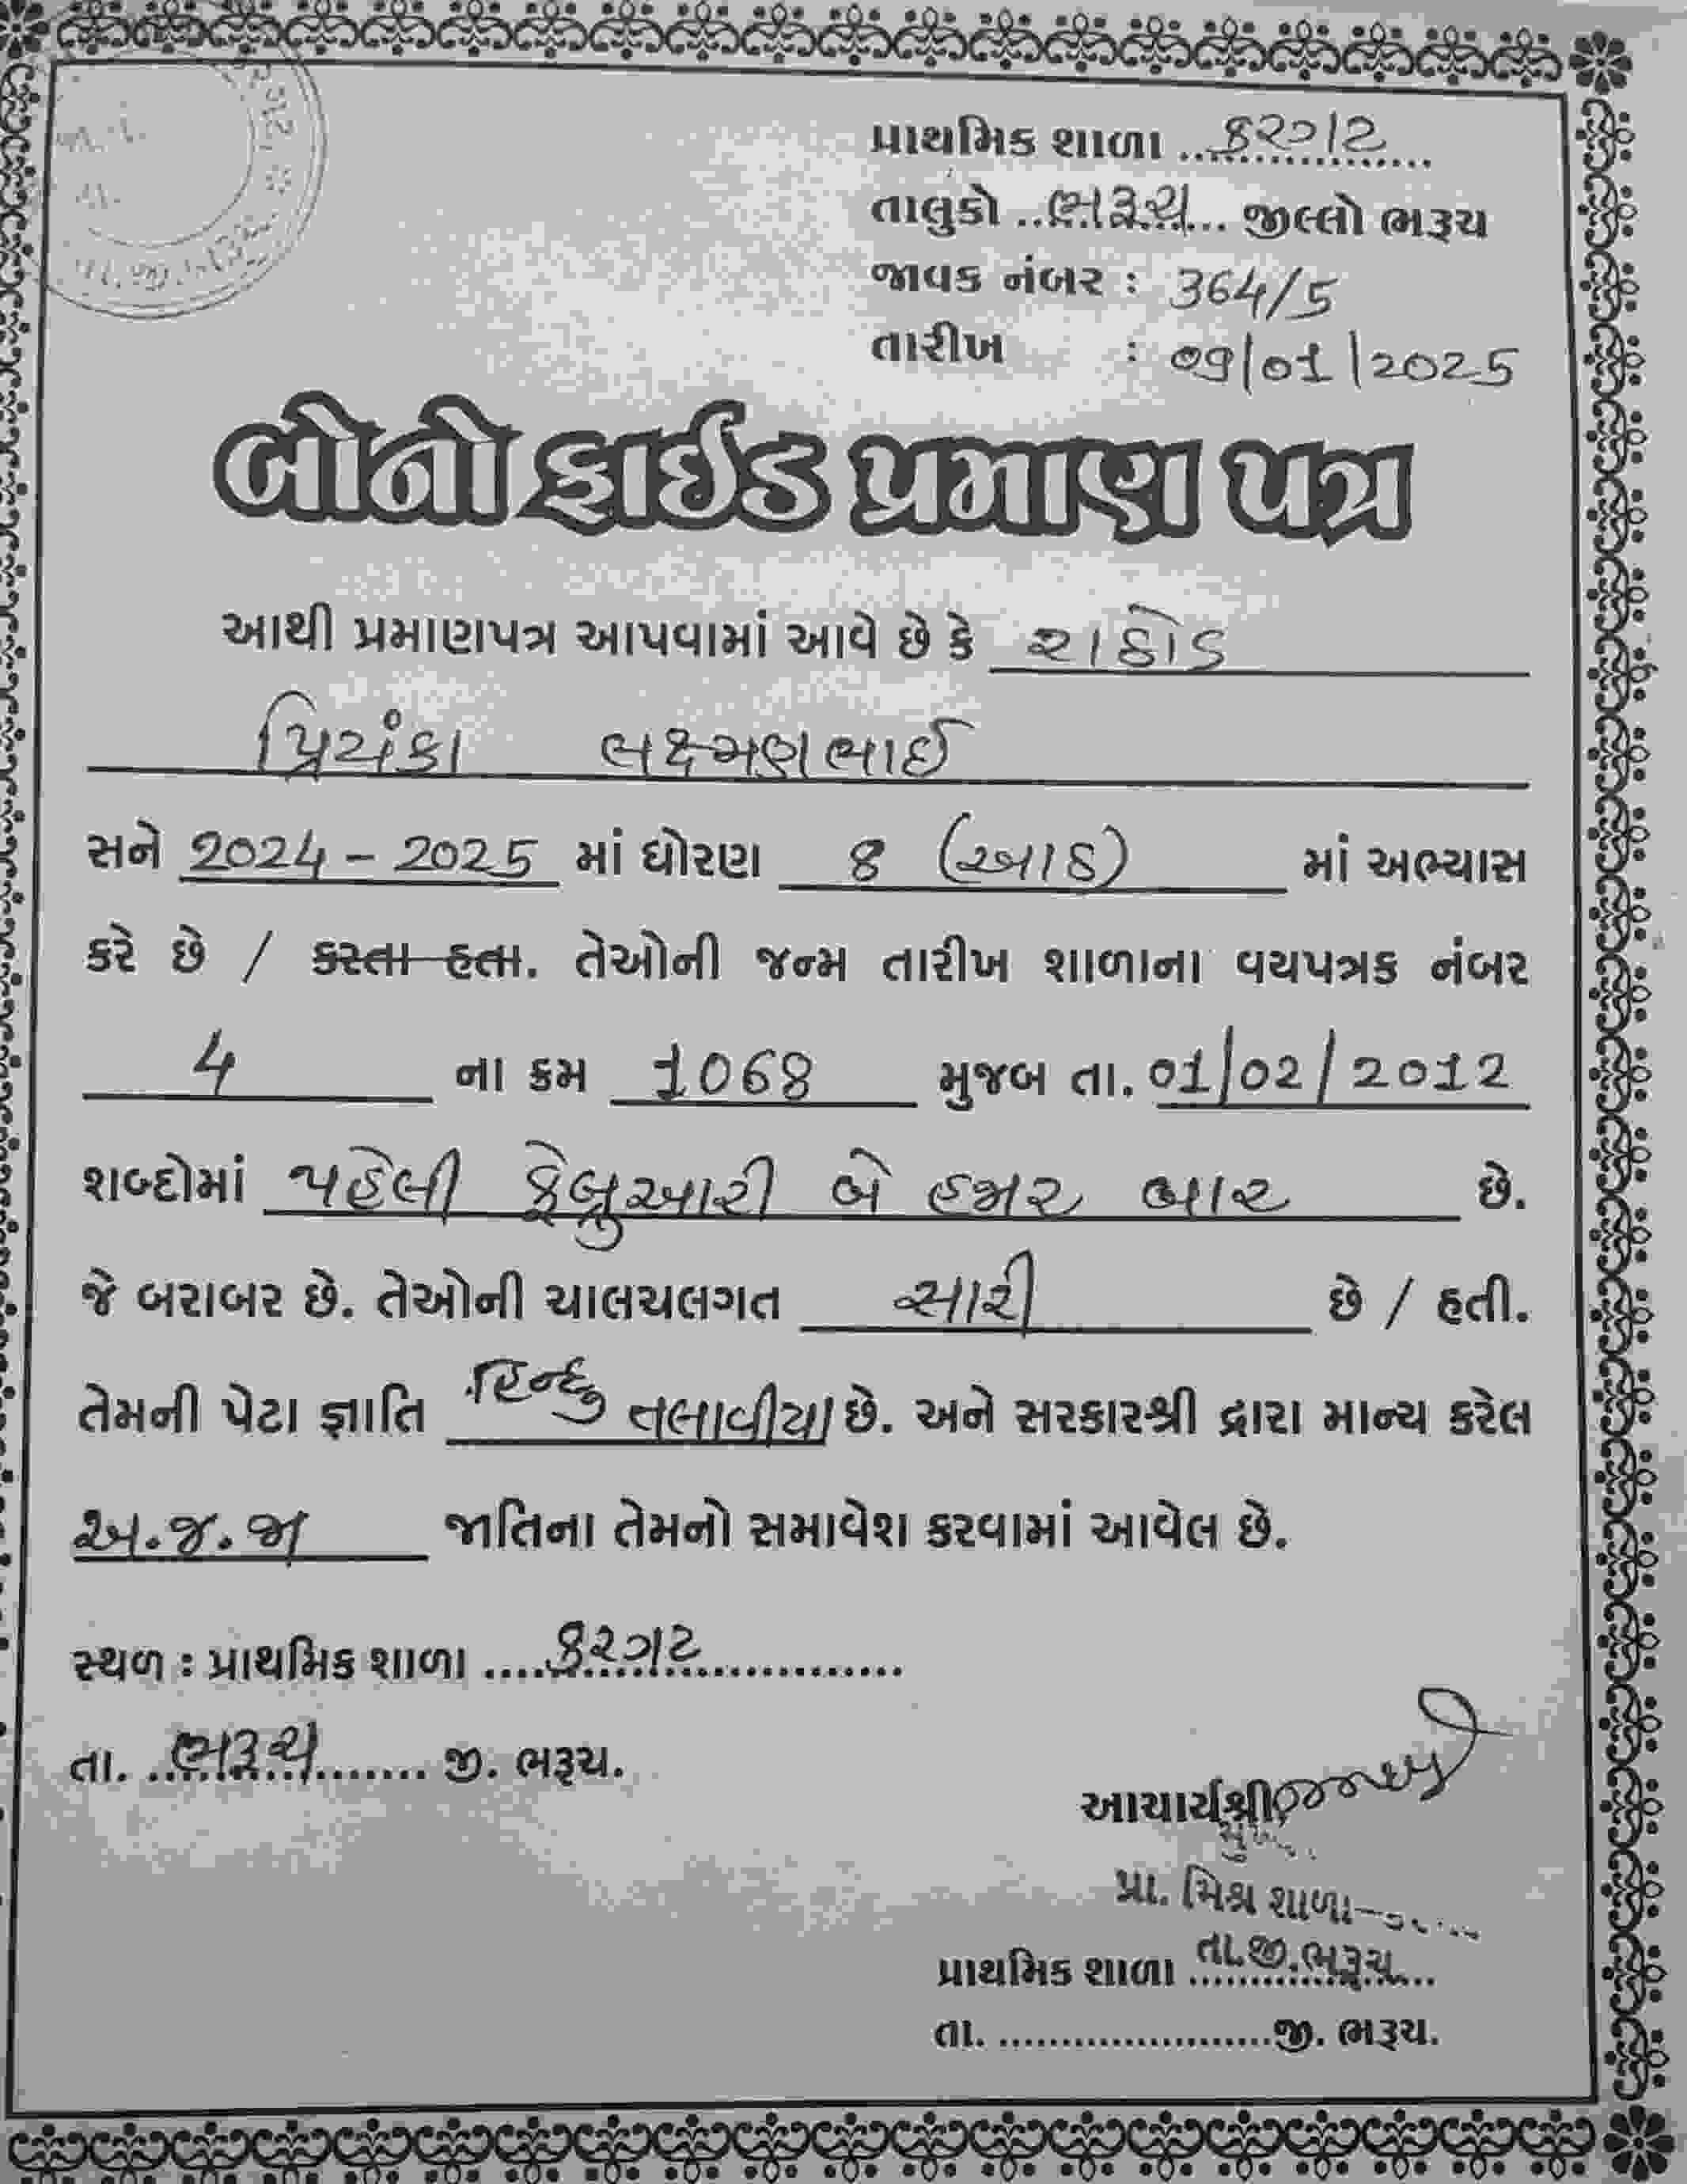 પ્રાથમિક શાળા ..કરગટ..
તાલુકો ..ભરૂચ... જીલ્લો ભરૂચ
જાવક નંબર : 364/5
તારીખ : 09/01/2025
બોનોફાઈડ પ્રમાણ પત્ર
આથી પ્રમાણપત્ર આપવામાં આવે છે કે રાઠોડ
પ્રિયંકા લક્ષ્મણભાઈ
સને 2024 - 2025 માં ધોરણ 8 (આઠ) માં અભ્યાસ
કરે છે / કરતા હતા. તેઓની જન્મ તારીખ શાળાના વયપત્રક નંબર
4 ના ક્રમ 1068 મુજબ તા. 01/02/2012
શબ્દોમાં પહેલી ફેબ્રુઆરી બે હજાર બાર છે.
જે બરાબર છે. તેઓની ચાલચલગત સારી છે / હતી.
તેમની પેટા જ્ઞાતિ હિન્દુ તલાવીયા છે. અને સરકારશ્રી દ્વારા માન્ય કરેલ
અ.જ.જા જાતિના તેમનો સમાવેશ કરવામાં આવેલ છે.
સ્થળ : પ્રાથમિક શાળા ....કરગટ..........
તા. ..ભરૂચ....... જી. ભરૂચ.
આચાર્યશ્રી,
પ્રા. મિશ્ર શાળા-
તા.જી.ભરૂચ
પ્રાથમિક શાળા ....................
તા. ......................જી. ભરૂચ.